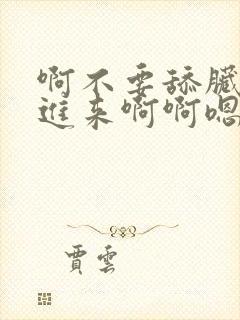 啊不要舔臟
進来啊啊嗯
賈雲